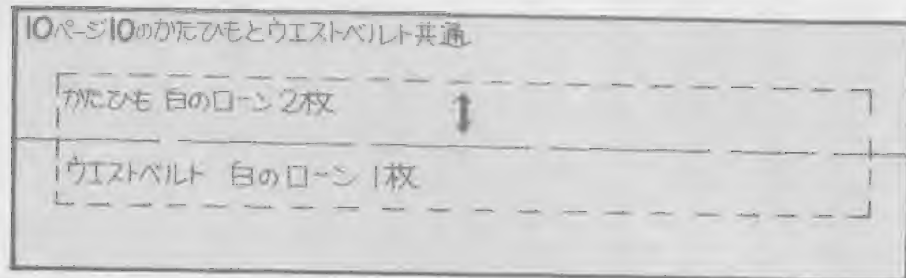 10ページ10のかたひもとウエストベルト共通
かたひも 白のローン2枚
ウエストベルト 白のローン1枚